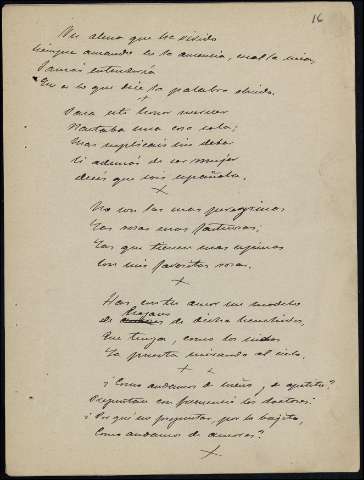 16
Un alma que ha vivido
siempre amando en la ausencia, exalta mía,
Jamás entendería
lo que dice la palabra olvido.
+
Para ser
Bastaba una cosa sola;
Mas
si además de ser mujer
decís que sois española.
+
No son las mas peregrinas
Las rosas mas
Las que tienen mas espinas
Son mis favoritas rosas.
+
Haz en tu amor un modelo
de hogares de dicha henchidos,
Que tenga, como los nidos
La puerta mirando al cielo.
+
¿Como andamos de sueño, y de apetito?
Preguntan con frecuencia los doctores:
¿Por qué no preguntar, por lo bajito,
Como andamos de amores?
+